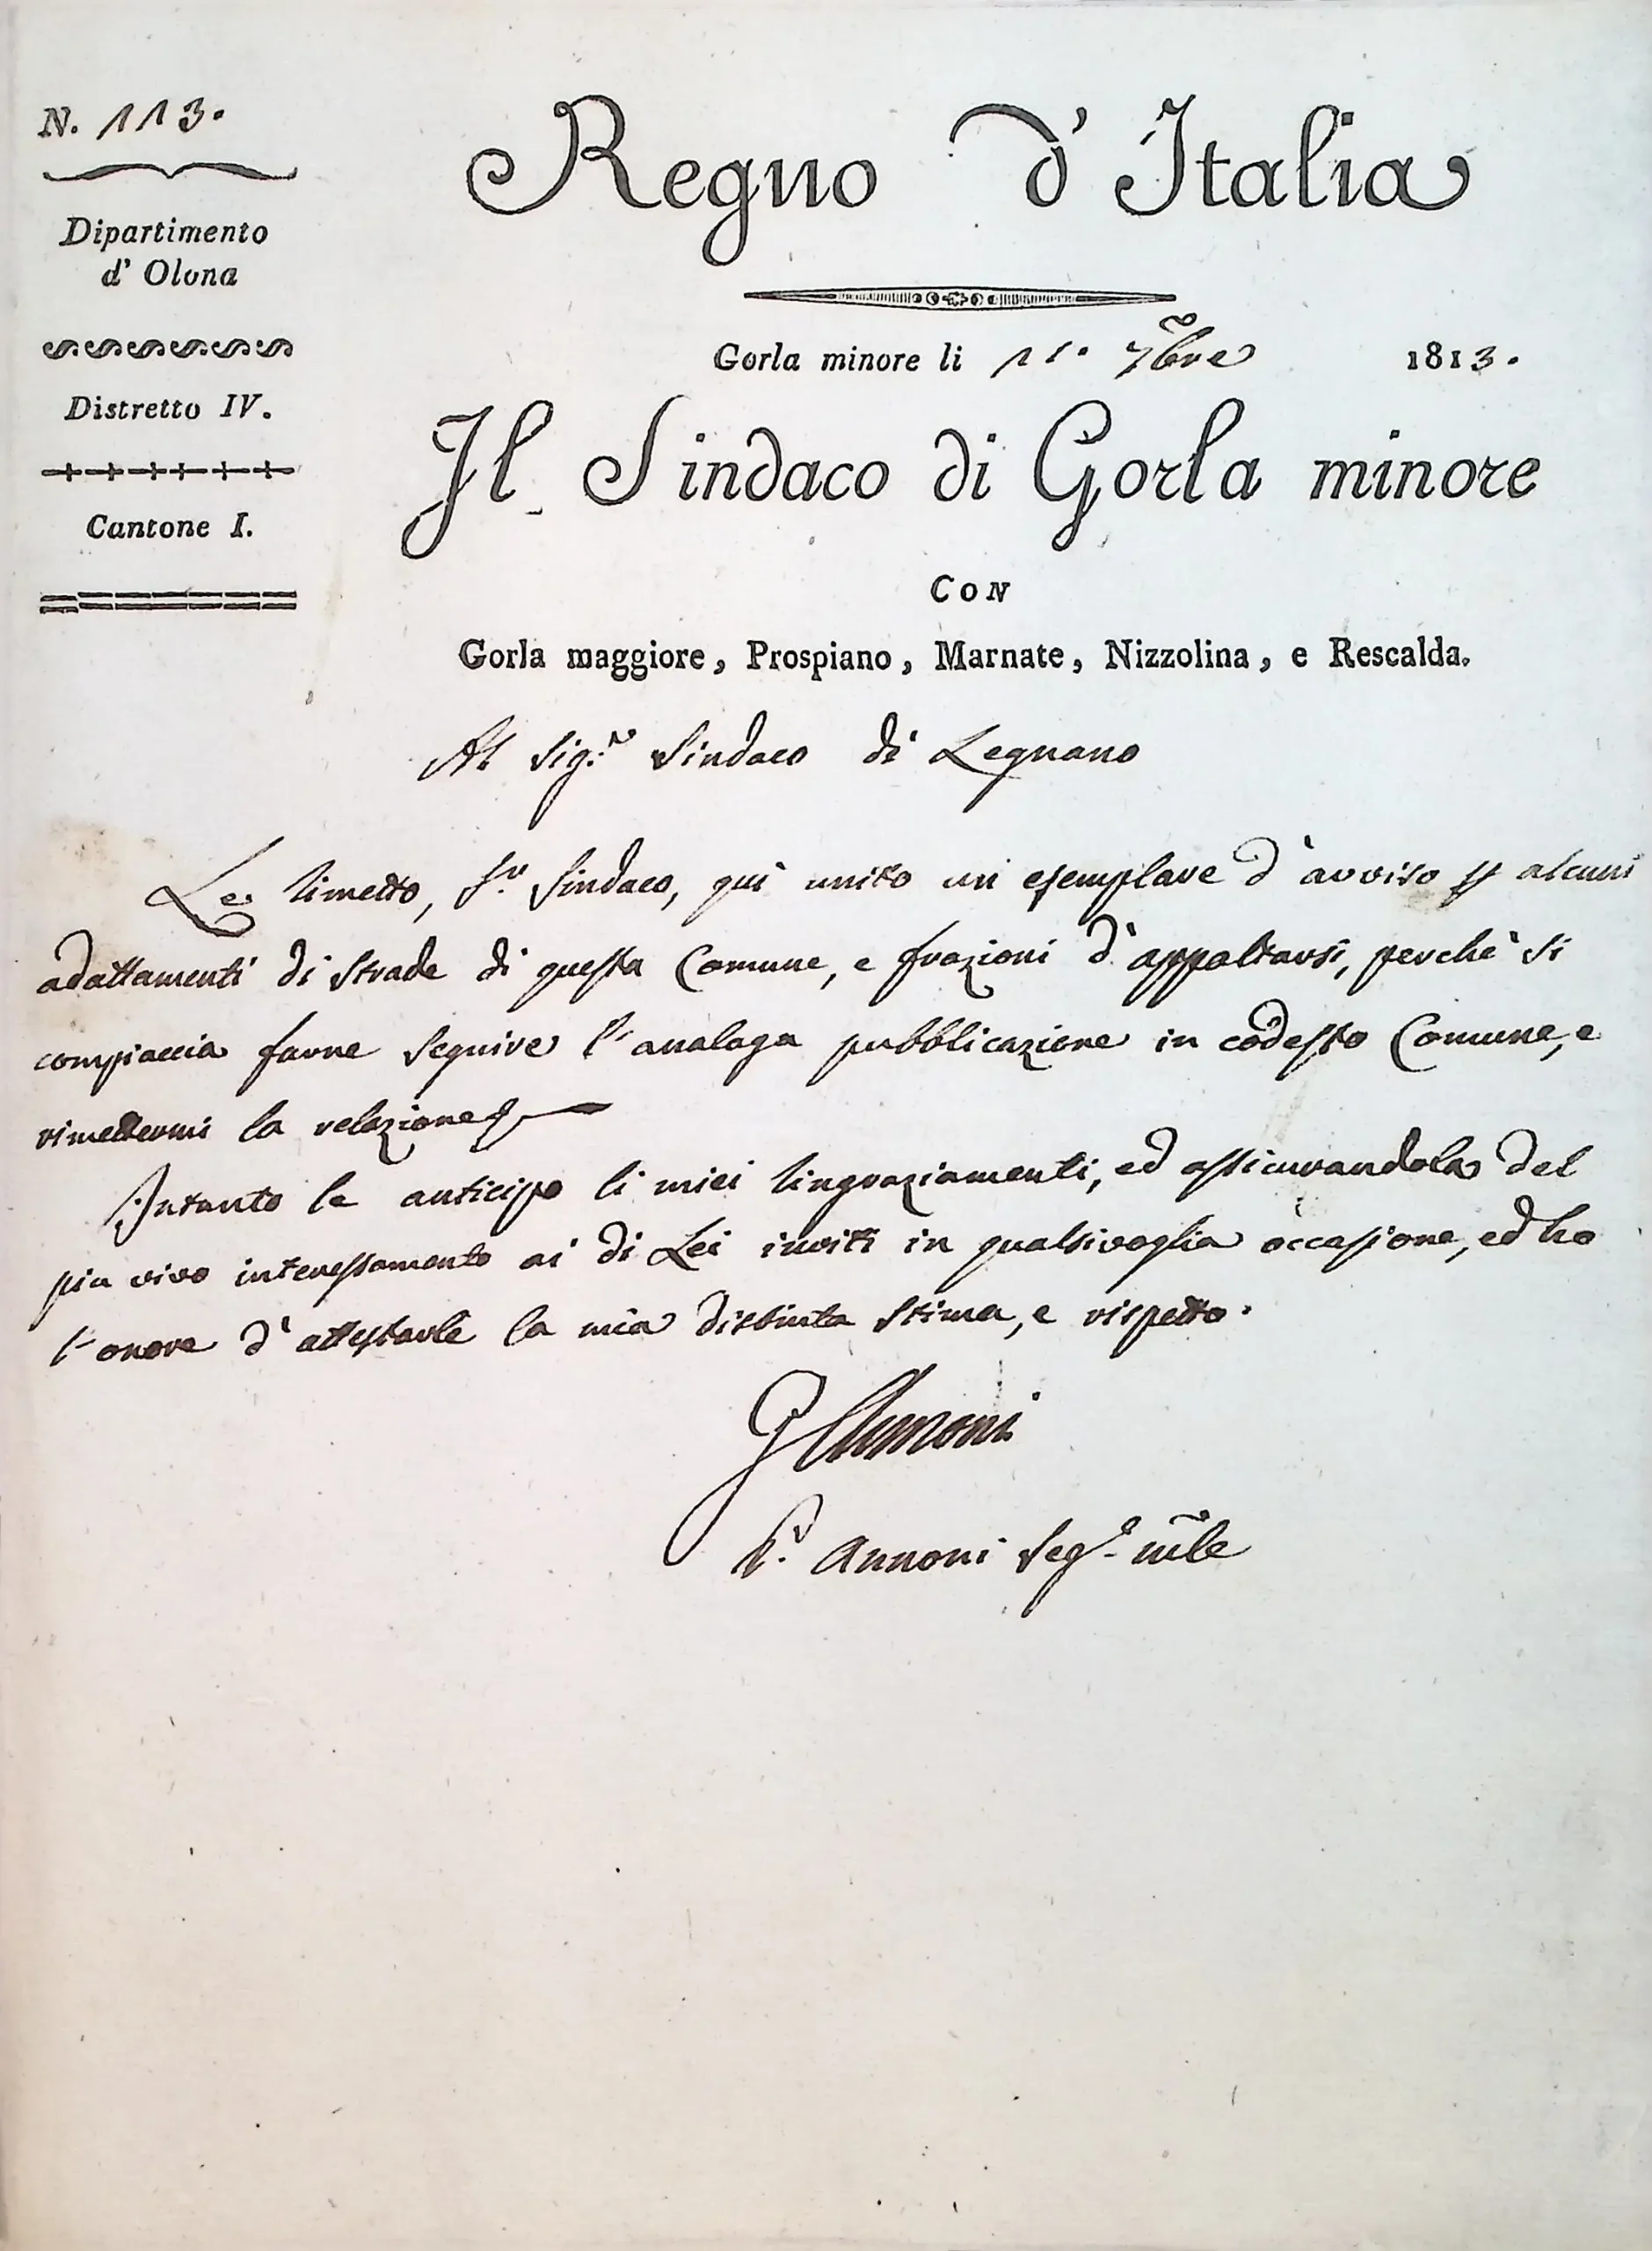 N. 113.
Dipartimento
d' Olona
Distretto IV.
Cantone I.
Regno d'Italia
Gorla minore li 11. 7bre 1813.
Il Sindaco di Gorla minore
CON
Gorla maggiore, Prospiano, Marnate, Nizzolina, e Rescalda.
Al Sig.r Sindaco di Legnano
Le rimetto, S.r Sindaco, qui unito un esemplare d'avviso p alcuni
adattamenti di strade di questa Comune, e frazioni d'appaltarsi, perchè si
compiaccia farne seguire l'analoga pubblicazione in codesto Comune, e
rimettermi la relazione
Intanto le anticipo li miei ringraziamenti, ed assicurandola del
più vivo interessamento ai di Lei inviti in qualsivoglia occasione, ed ho
l'onore d'attestarle la mia distinta stima, e rispetto.
G Annoni
P. Annoni Seg.o mle